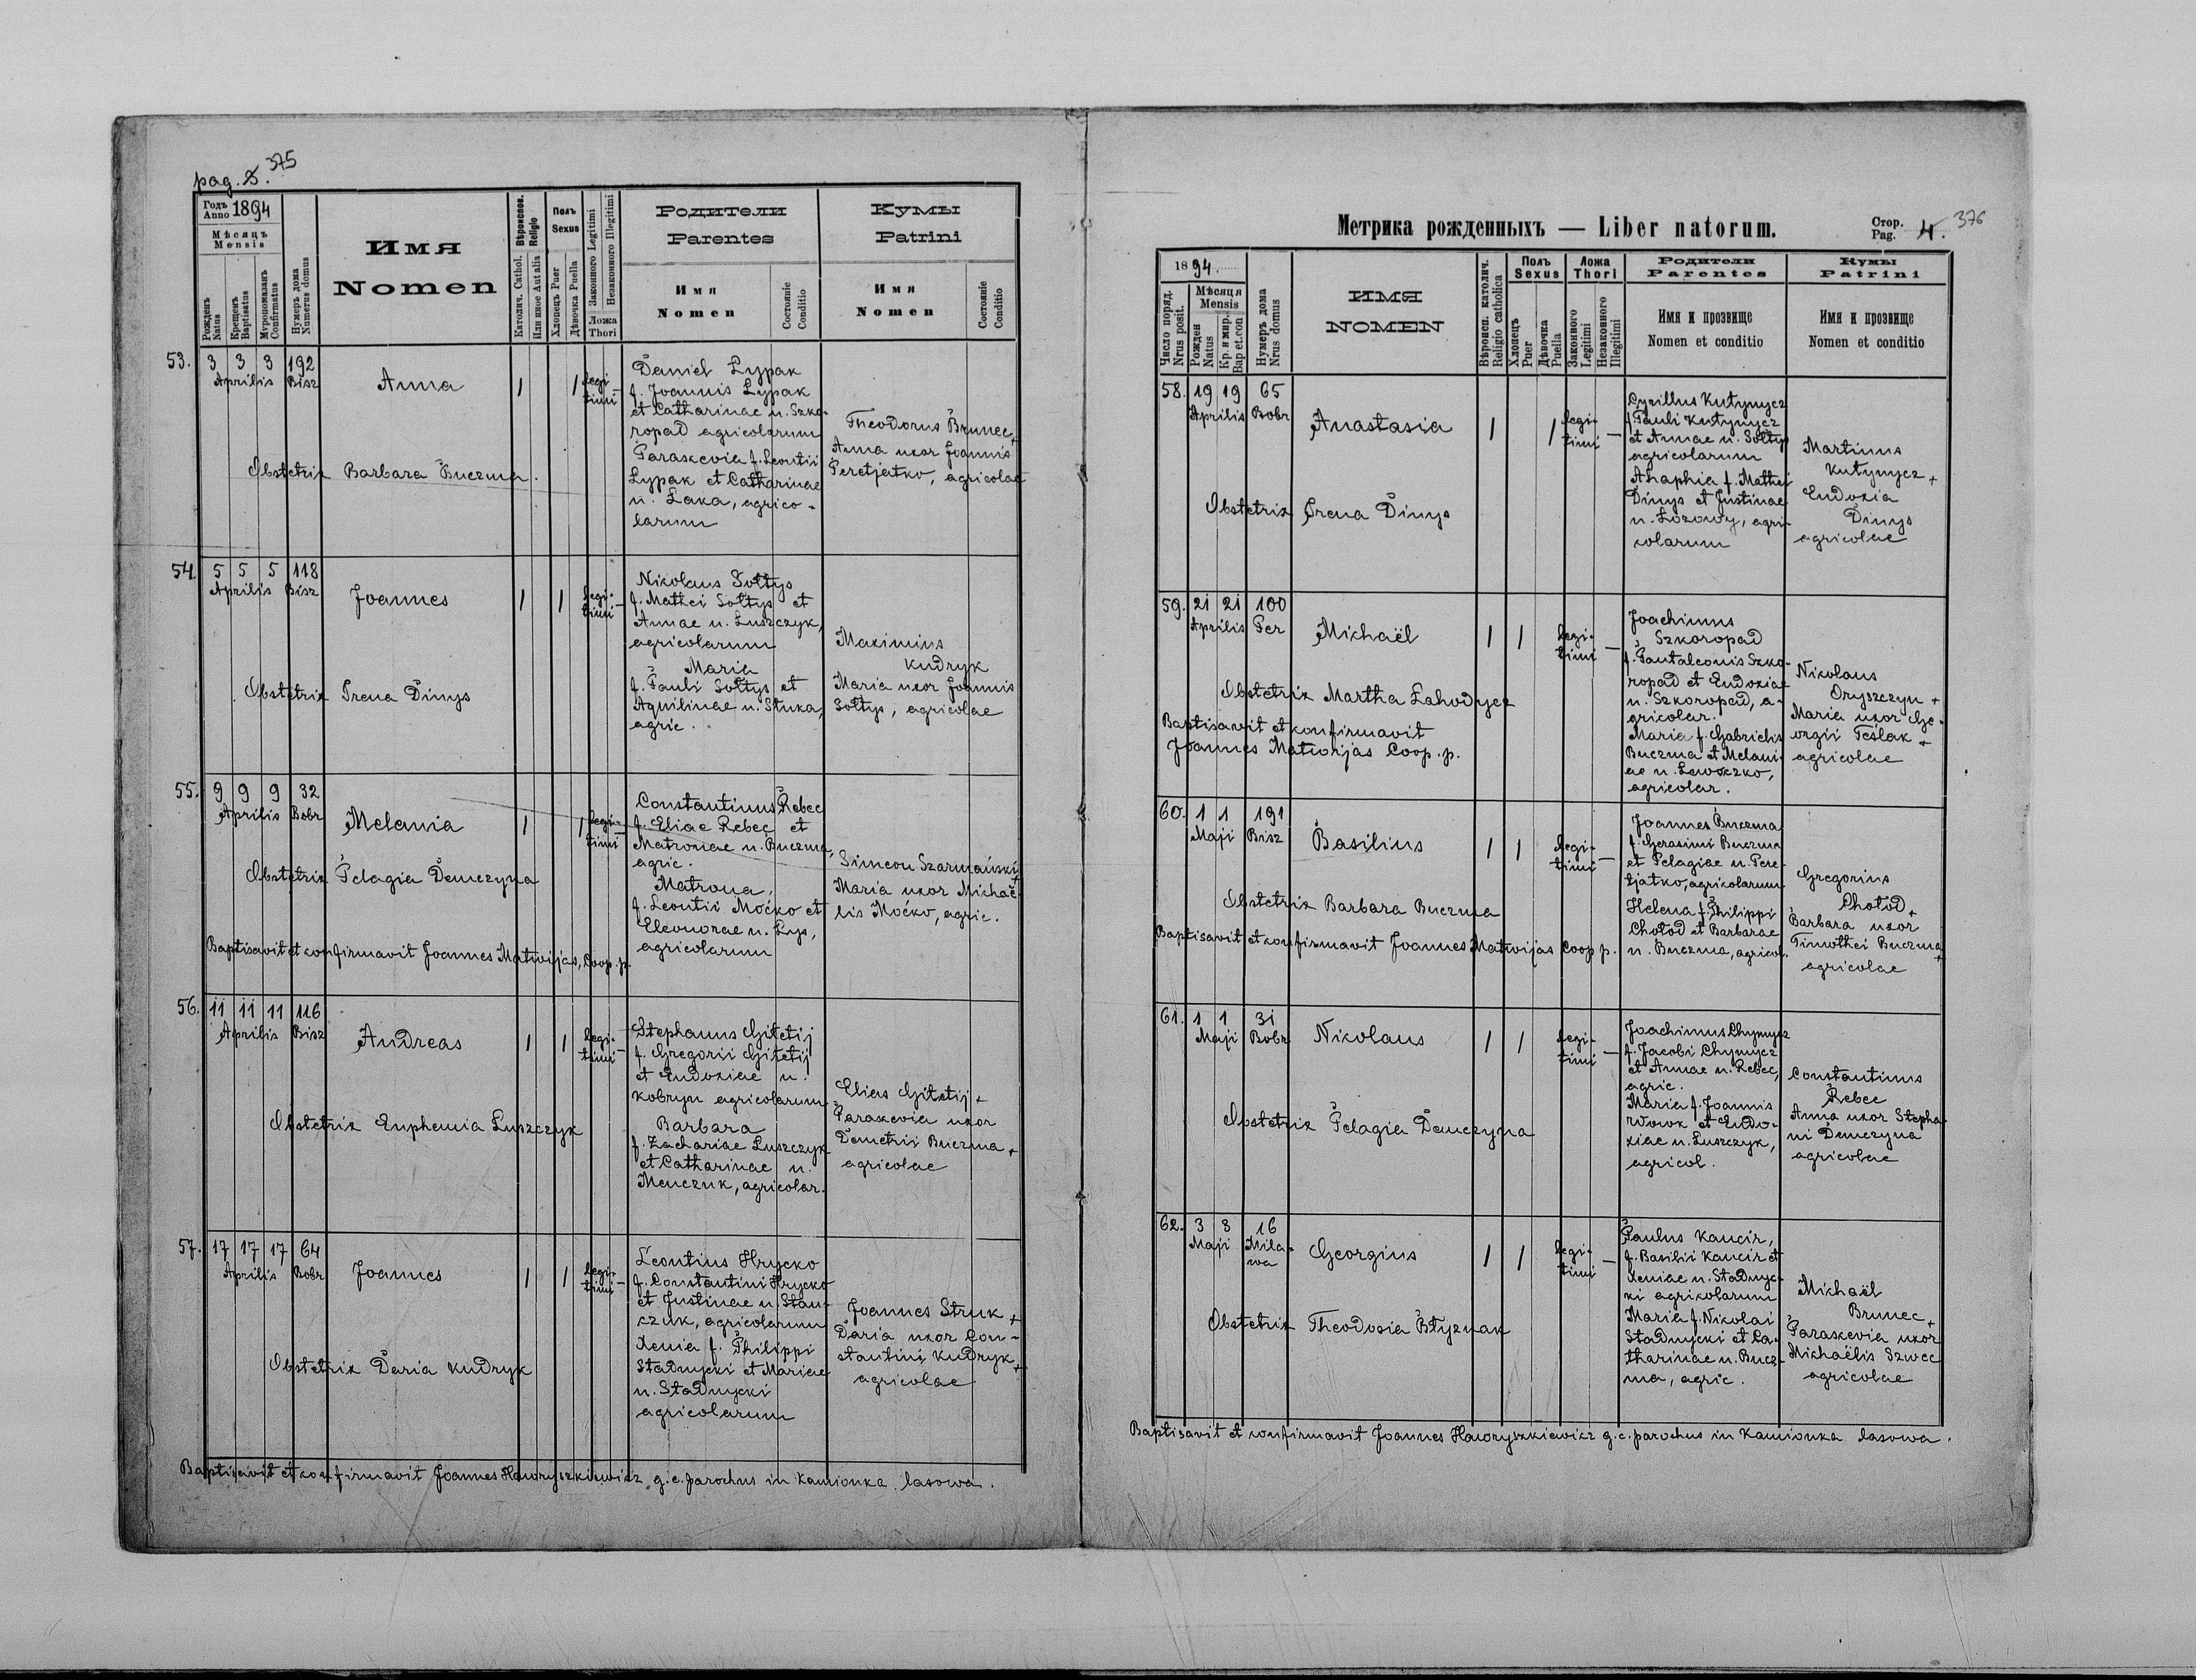 pag. 8. 375
Годъ Anno 1894
Мѣсяцъ
Mensis
Рожденъ Natus
Крещенъ Baptisatus
Мѵропомазанъ Confirmatus
Нумеръ дома Numerus domus
Имя
Nomen
Вѣроиспов. Religio
Католич. Cathol.
Или иное Aut alia
Полъ
Sexus
Хлопецъ Puer
Дѣвочка Puella
Законного Legitimi
Незаконного Illegitimi
Ложа
Thori
Родители
Parentes
Имя
Nomen
Состояніе
Conditio
Кумы
Patrini
Имя
Nomen
Состояніе
Conditio
53. 3 3 3 192
Aprilis Bisz
Anna
1 1 legi-
timi
Daniel Lypak
f. Joannis Lypak
et Catharinae n. Szko-
ropad agricolarum
Paraskevia f. Leontii
Lypak et Catharinae
n. Laka, agrico-
larum
Theodorus Brunec +
Anna uxor Joannis
Peretjatko, agricolae
Obstetrix Barbara Buczma.
54. 5 5 5 118
Aprilis Bisz
Joannes
1 1 legi-
timi
Nikolaus Sołtys
f. Mathei Sołtys et
Annae n. Luszczyk,
agricolarum
Maria
f. Pauli Sołtys et
Aquilinae n. Stuka,
agric.
Maximius
Kudryk
Maria uxor Joannis
Sołtys, agricolae
Obstetrix Irena Dinys
55. 9 9 9 32
Aprilis Bobr
Melania
1 1 legi-
timi
Constantinus Rebec
f. Eliae Rebec et
Matronae n. Buczma,
agric.
Matrona,
f. Leontii Moćko et
Eleonorae n. Lys,
agricolarum
Simeon Szarmański +
Maria uxor Michaë-
lis Moćko, agric.
Obstetrix Pelagia Demczyna
Baptisavit et konfirmavit Joannes Matwijas, Coop. p.
56. 11 11 11 116
Aprilis Bisz
Andreas
1 1 legi-
timi
Stephanus Gitetij
f. Gregorii Gitetij
et Eudoxiae n.
Kobryn agricolarum
Barbara
f. Zachariae Luszczyk
et Catharinae n.
Menczuk, agricolar.
Elias Gitetij +
Paraskevia uxor
Demetrii Buczma +
agricolae
Obstetrix Euphemia Luszczyk
57. 17 17 17 64
Aprilis Bobr
Joannes
1 1 legi-
timi
Leontius Hrycko
f. Constantini Hrycko
et Justinae n. Stan-
czuk, agricolarum
Xenia f. Philippi
Stadnycki et Mariae
n. Stadnycki
agricolarum
Joannes Struk +
Daria uxor Con-
stantini Kudryk +
agricolae
Obstetrix Daria Kudryk
Baptisavit et konfirmavit Joannes Hawryszkiewicz g.c. parochus in Kamionka lasowa.
Метрика рожденныхъ — Liber natorum.
Стор.
Pag. 4. 376
1894
Число поряд. Nrus posit.
Мѣсяця
Mensis
Рожден Natus
Кр. и мир. Bap et.con
Нумеръ дома Nrus domus
ИМЯ
NOMEN
Вѣроисп. католич. Religio catholica
Полъ
Sexus
Хлопецъ Puer
Дѣвочка Puella
Ложа
Thori
Законного Legitimi
Незаконного Illegitimi
Родители
Parentes
Имя и прозвище
Nomen et conditio
Кумы
Patrini
Имя и прозвище
Nomen et conditio
58. 19 19 65
Aprilis Bobr
Anastasia
1 1 legi-
timi
Cyrillus Kutynycz
f. Pauli Kutynycz
et Annae n. Sołtys
agricolarum
Ahaphia f. Mathei
Dinys et Justinae
n. Łozowy, agri-
colarum
Martinus
Kutynycz +
Eudoxia
Dinys
agricolae
Obstetrix Irena Dinys
59. 21 21 100
Aprilis Per
Michaël
1 1 legi-
timi
Joachimus
Szkoropad
f. Pantaleonis Szko-
ropad et Eudoxiae
n. Szkoropad, a-
gricolar.
Maria f. Gabrielis
Buczma et Melani-
ae n. Lewoczko,
agricolar.
Nikolaus
Oryszczyn +
Maria uxor Ge-
orgii Teślak +
agricolae
Obstetrix Martha Lahodycz
Baptisavit et konfirmavit
Joannes Matwijas Coop. p.
60. 1 1 191
Maji Bisz
Basilius
1 1 legi-
timi
Joannes Buczma
f. Gerasimi Buczma
et Pelagiae n. Pere-
tjatko, agricolarum
Helena f. Philippi
Chołod et Barbarae
n. Buczma, agricol.
Gregorius
Chołod +
Barbara uxor
Timothei Buczma +
agricolae
Obstetrix Barbara Buczma
Baptisavit et konfirmavit Joannes Matwijas Coop p.
61. 1 1 31
Maji Bobr
Nikolaus
1 1 legi-
timi
Joachimus Chymycz
f. Jacobi Chymycz
et Annae n. Rebec,
agric.
Maria f. Joannis
Wowk et Eudo-
xiae n. Luszczyk,
agricol.
Constantinus
Rebec
Anna uxor Stepha-
ni Demczyna
agricolae
Obstetrix Pelagia Demczyna
62. 3 3 16
Maji Mila-
wa
Georgius
1 1 legi-
timi
Paulus Kancir,
f. Basilii Kancir et
Xeniae n. Stadnyc-
ki agricolarum
Maria f. Nikolai
Stadnycki et Ca-
tharinae n. Bucz-
ma, agric.
Michaël
Brunec +
Paraskevia uxor
Michaëlis Szwec
agricolae
Obstetrix Theodosia Błyznak
Baptisavit et konfirmavit Joannes Hawryszkiewicz g.c. parochus in Kamionka lasowa.